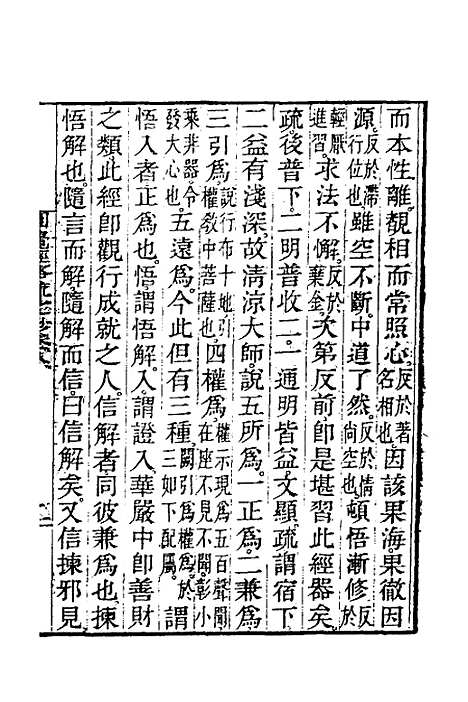 而本性離覩相而常照心反於著名相也因該果海果徹因
源反於滯行位也雖空不斷中道了然反於情尚空也頓悟漸修反於
輕厭進習求法不懈反於棄金次第反前卽是堪習此經器矣
疏後普下二明普收二一通明皆益文顯疏謂宿下
二益有淺深故淸涼大師說五所爲一正爲二兼爲
三引爲說行布十地引權敎中菩薩也四權爲權示現爲五百聲聞在座不見不聞彰小
乘非器令發大心也五遠爲今此但有三種闕引爲權爲於三如下配屬謂
悟入者正爲也悟謂悟解入謂證入華嚴中卽善財
之類此經卽觀行成就之人信解者同彼兼爲也揀
悟解也隨言而解隨解而信曰信解矣又信揀邪見
圓覺經略疏之鈔卷八